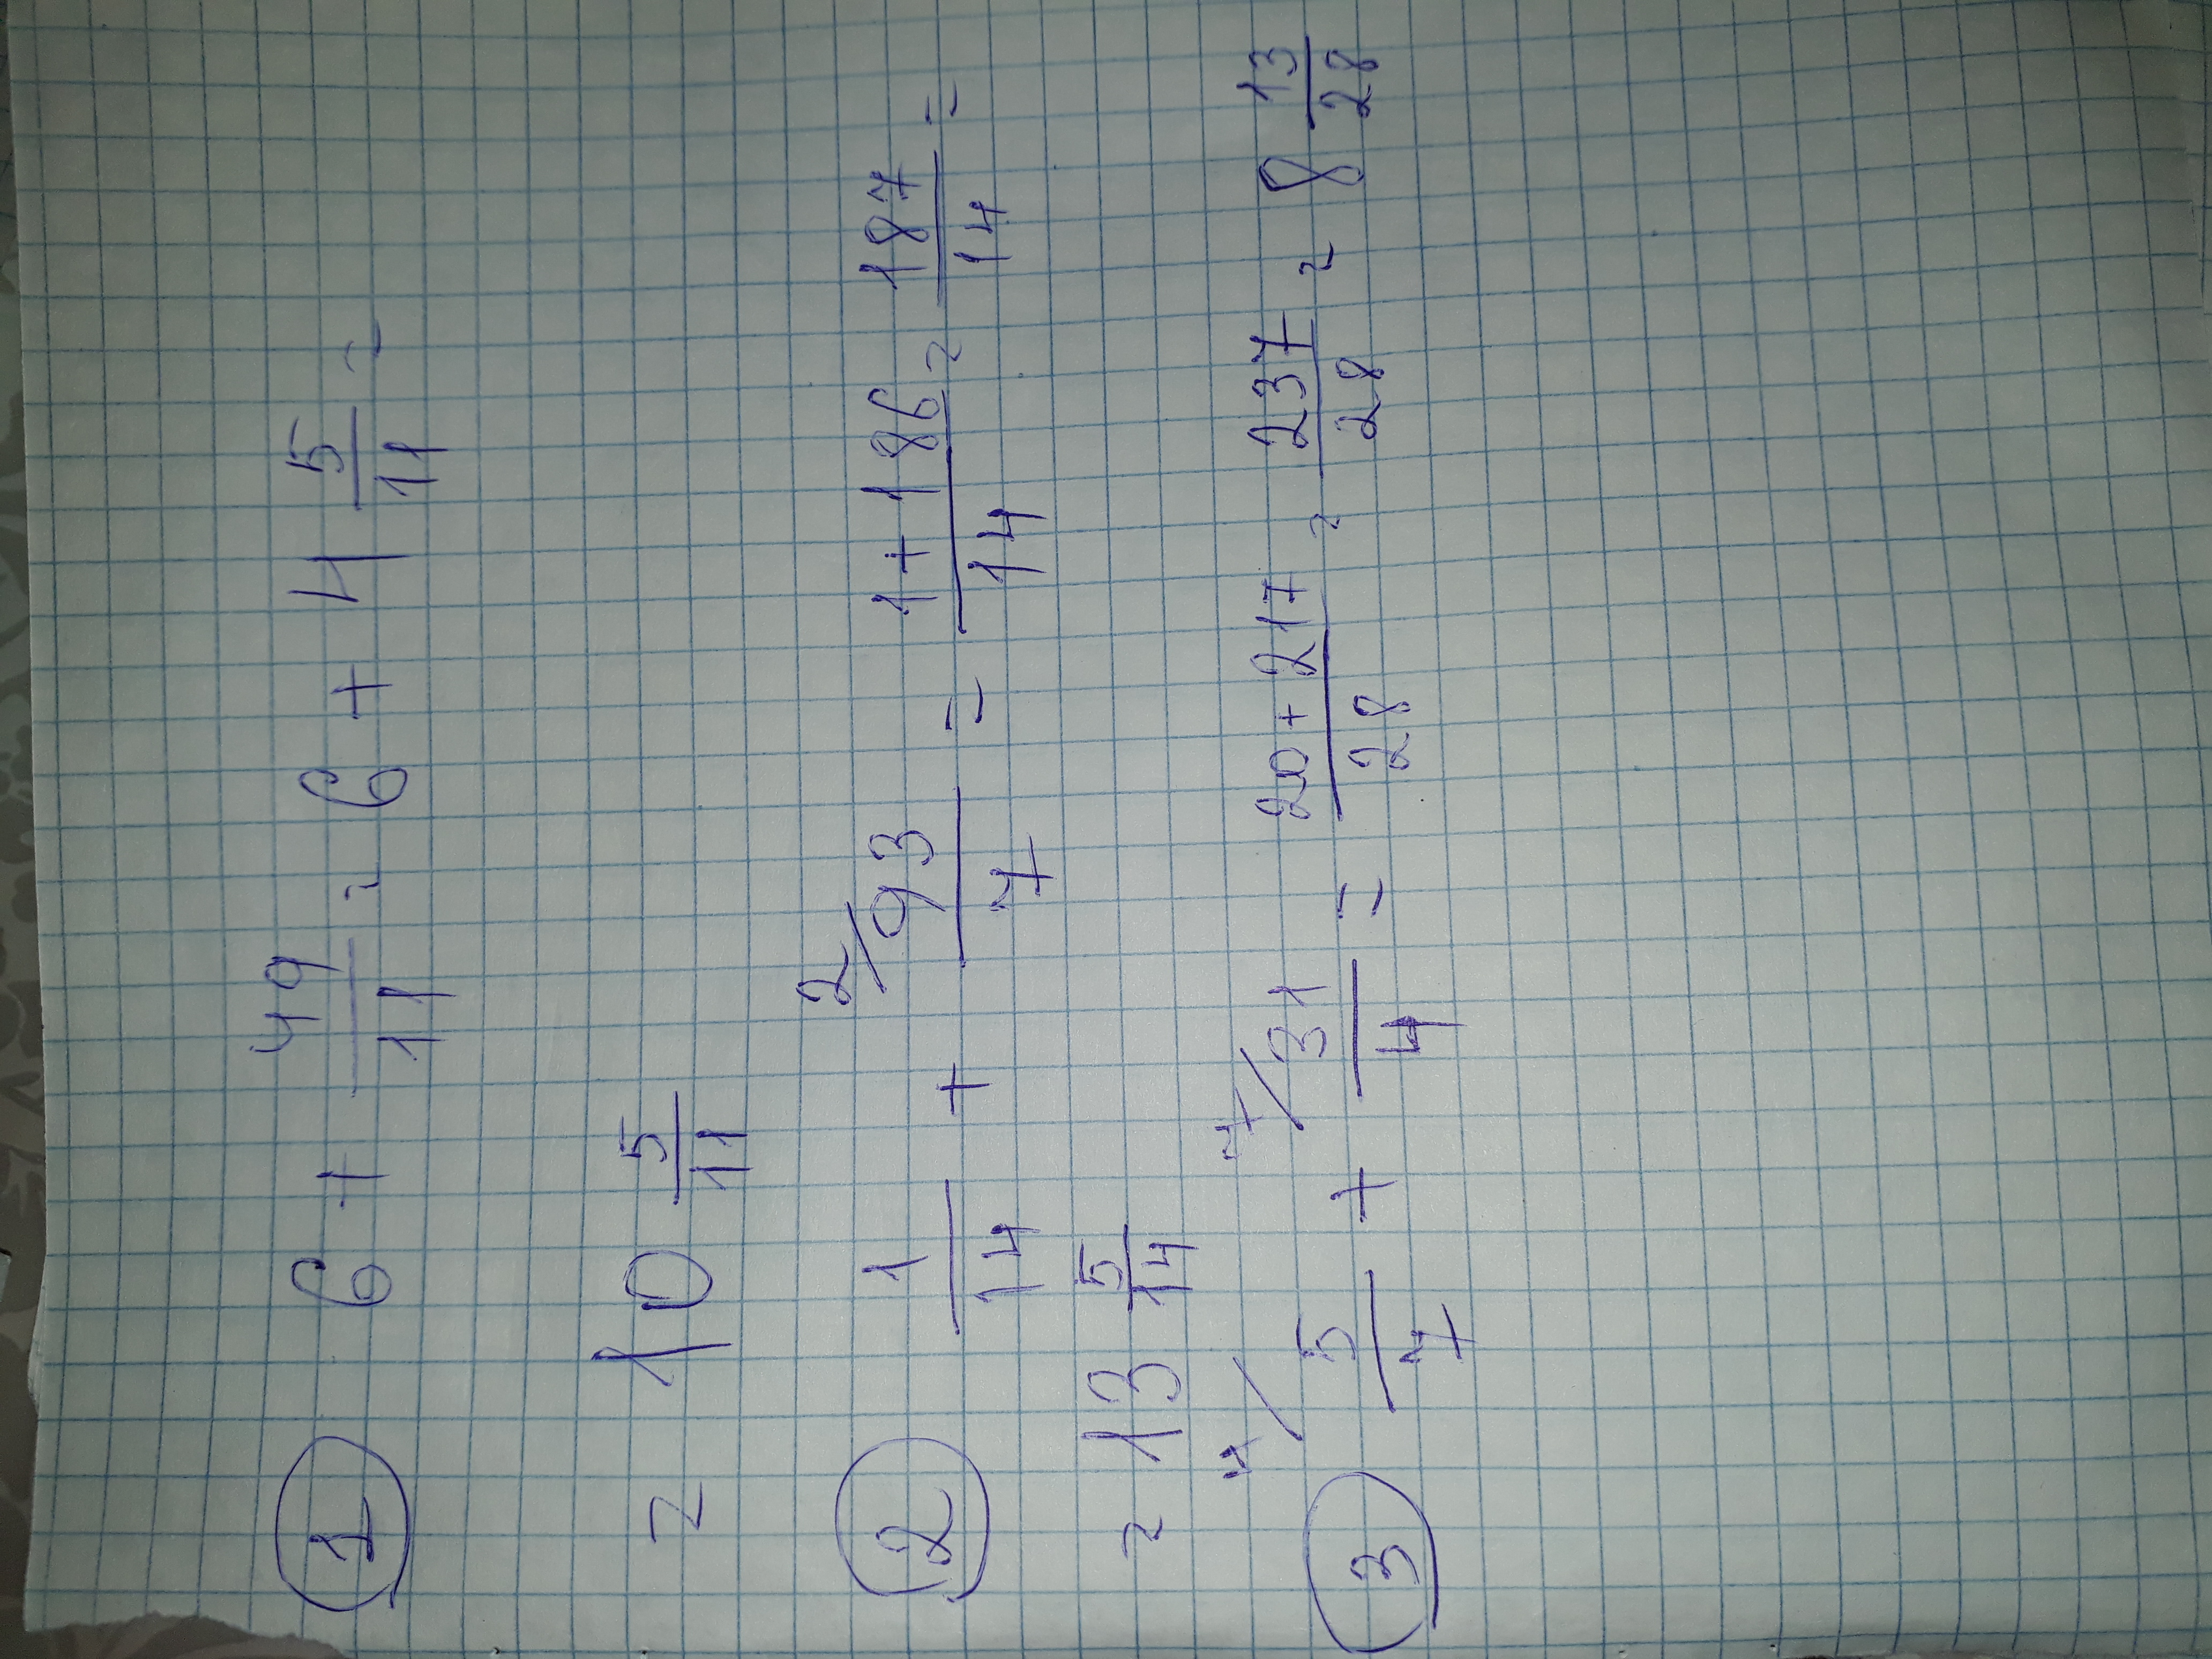 ① 6 + 49/11 = 6 + 4 5/11 =
= 10 5/11
② 1/14 + 2/ 93/7 = 1+186/14 = 187/14 =
= 13 5/14
③ 4/ 5/7 + 7/ 31/4 = 20+217/28 = 237/28 = 8 13/28